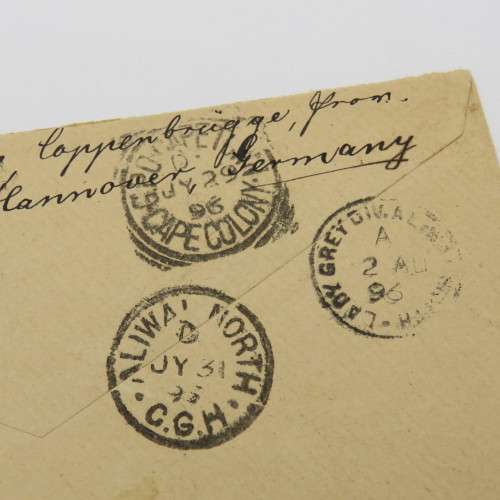 Coppenbrügge, from
Hannover, Germany
D
JY 29
96
CAPE COLONY
LADY GREY DIV. ALIWAL NORTH
A
2 AU
96
ALIWAL NORTH
D
JY 31
96
C.G.H.